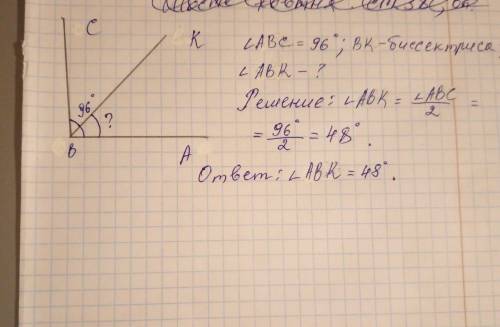 C
K
96°
?
B
A
∠ABC = 96°; BK - биссектриса
∠ABK - ?
Решение: ∠ABK = ∠ABC/2 =
= 96°/2 = 48°.
Ответ: ∠ABK = 48°.